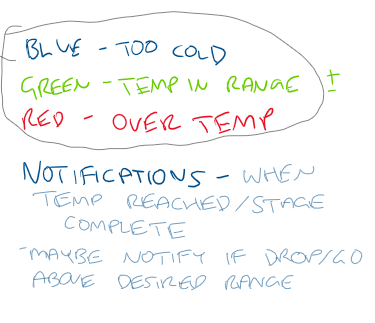 BLUE - TOO COLD
GREEN - TEMP IN RANGE ±
RED - OVER TEMP
NOTIFICATIONS - WHEN
TEMP REACHED/STAGE
COMPLETE
-MAYBE NOTIFY IF DROP/GO
ABOVE DESIRED RANGE